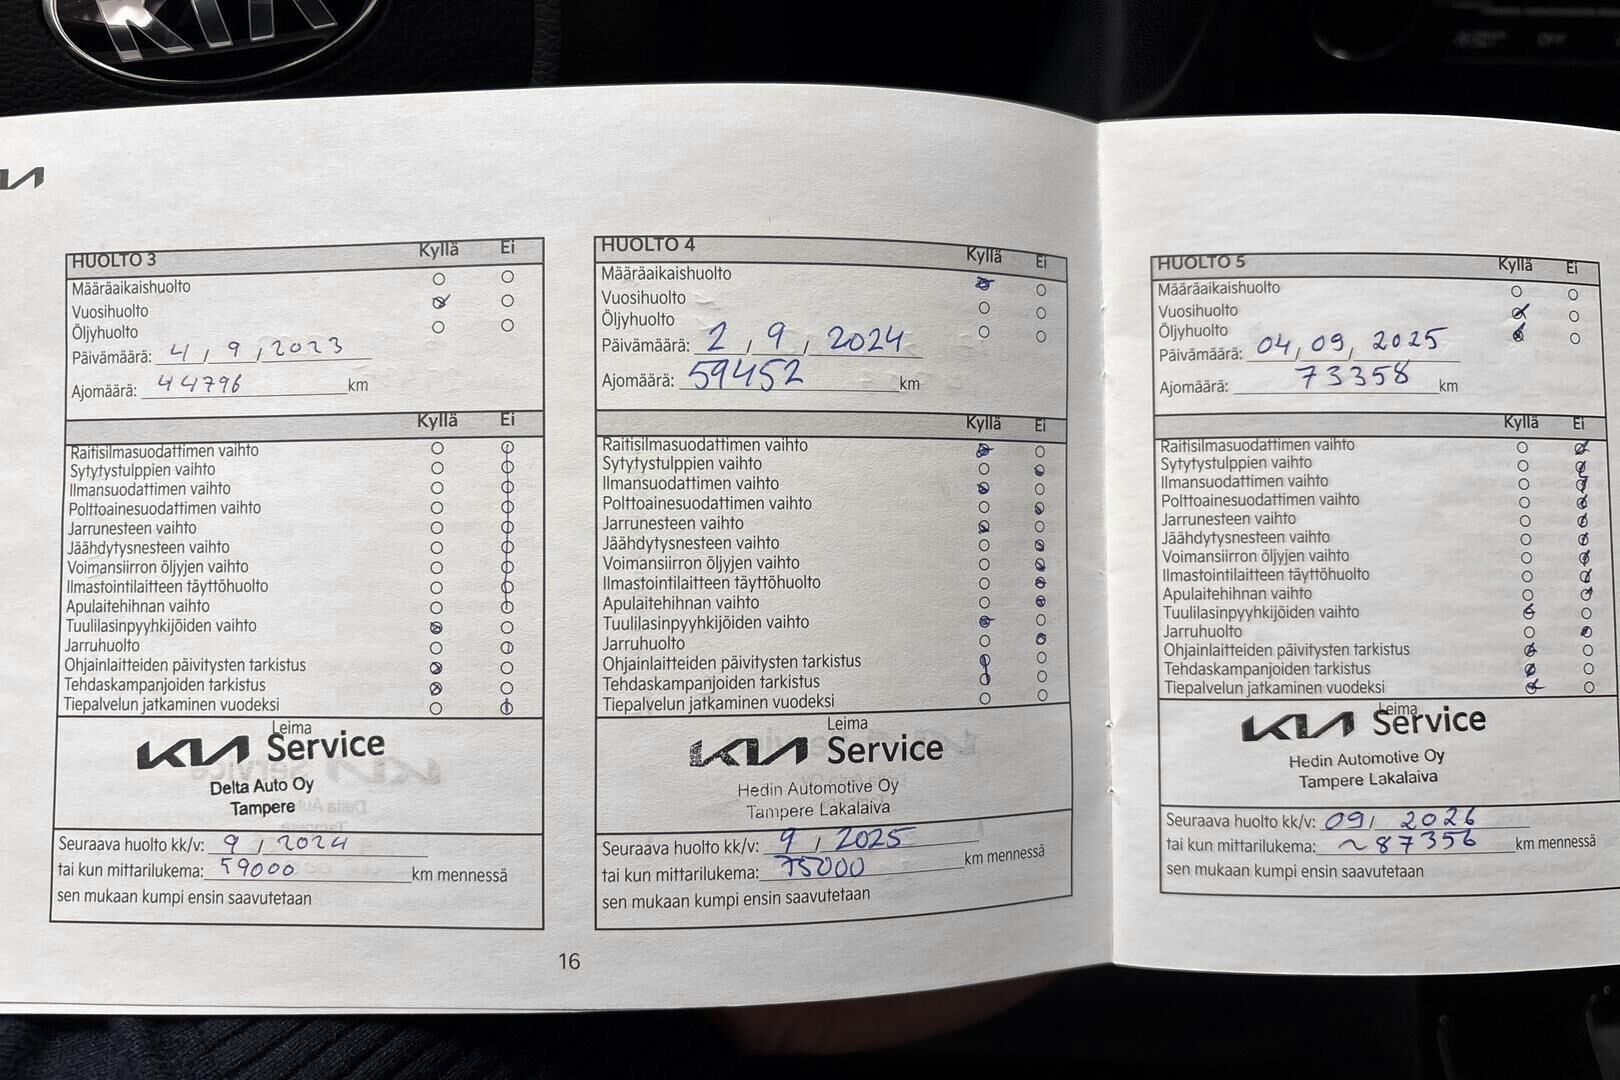 KIA
OFF
HUOLTO 3 Kyllä Ei
Määräaikaishuolto
Vuosihuolto
Öljyhuolto
Päivämäärä: 4, 9, 2023
Ajomäärä: 44796 km
Kyllä Ei
Raitisilmasuodattimen vaihto
Sytytystulppien vaihto
Ilmansuodattimen vaihto
Polttoainesuodattimen vaihto
Jarrunesteen vaihto
Jäähdytysnesteen vaihto
Voimansiirron öljyjen vaihto
Ilmastointilaitteen täyttöhuolto
Apulaitehihnan vaihto
Tuulilasinpyyhkijöiden vaihto
Jarruhuolto
Ohjainlaitteiden päivitysten tarkistus
Tehdaskampanjoiden tarkistus
Tiepalvelun jatkaminen vuodeksi
Leima
KIA Service
Delta Auto Oy
Tampere
Seuraava huolto kk/v: 9 / 2024
tai kun mittarilukema: 59000 km mennessä
sen mukaan kumpi ensin saavutetaan
HUOLTO 4 Kyllä Ei
Määräaikaishuolto
Vuosihuolto
Öljyhuolto
Päivämäärä: 2, 9, 2024
Ajomäärä: 59452 km
Kyllä Ei
Raitisilmasuodattimen vaihto
Sytytystulppien vaihto
Ilmansuodattimen vaihto
Polttoainesuodattimen vaihto
Jarrunesteen vaihto
Jäähdytysnesteen vaihto
Voimansiirron öljyjen vaihto
Ilmastointilaitteen täyttöhuolto
Apulaitehihnan vaihto
Tuulilasinpyyhkijöiden vaihto
Jarruhuolto
Ohjainlaitteiden päivitysten tarkistus
Tehdaskampanjoiden tarkistus
Tiepalvelun jatkaminen vuodeksi
Leima
KIA Service
Hedin Automotive Oy
Tampere Lakalaiva
Seuraava huolto kk/v: 9 / 2025
tai kun mittarilukema: 75000 km mennessä
sen mukaan kumpi ensin saavutetaan
16
HUOLTO 5 Kyllä Ei
Määräaikaishuolto
Vuosihuolto
Öljyhuolto
Päivämäärä: 04, 09, 2025
Ajomäärä: 73358 km
Kyllä Ei
Raitisilmasuodattimen vaihto
Sytytystulppien vaihto
Ilmansuodattimen vaihto
Polttoainesuodattimen vaihto
Jarrunesteen vaihto
Jäähdytysnesteen vaihto
Voimansiirron öljyjen vaihto
Ilmastointilaitteen täyttöhuolto
Apulaitehihnan vaihto
Tuulilasinpyyhkijöiden vaihto
Jarruhuolto
Ohjainlaitteiden päivitysten tarkistus
Tehdaskampanjoiden tarkistus
Tiepalvelun jatkaminen vuodeksi
Leima
KIA Service
Hedin Automotive Oy
Tampere Lakalaiva
Seuraava huolto kk/v: 09/ 2026
tai kun mittarilukema: ~87356 km mennessä
sen mukaan kumpi ensin saavutetaan